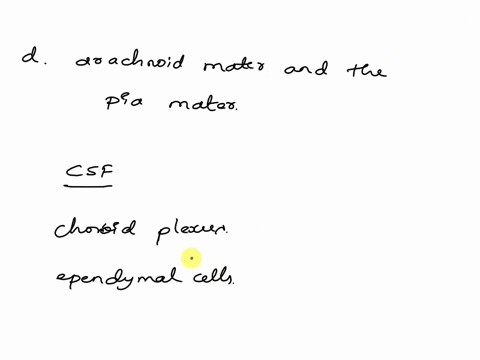 d. arachnoid mater and the
pia mater.
CSF
choroid plexus.
ependymal cells.